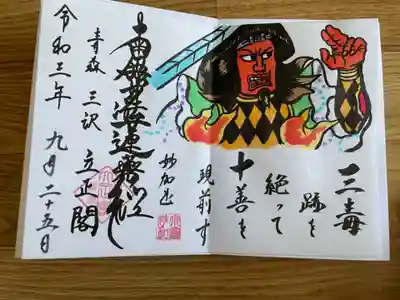 三毒
跡を
絶って
十善を
現前す
妙加也
南無妙法蓮華経
青森 三沢 立正閣
令和三年 九月二十五日